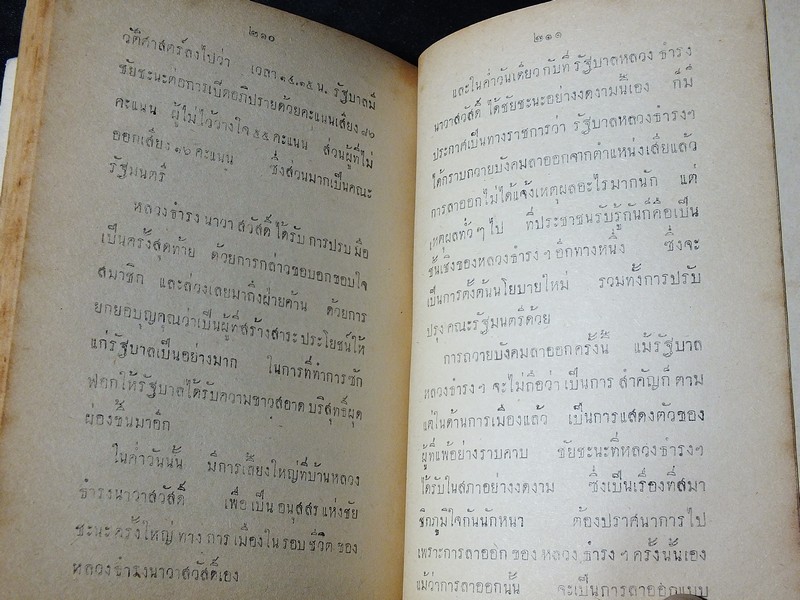 ๒๑๐
วัติศาสตร์ลงไปว่า เวลา ๑๔.๑๕ น. รัฐบาลมี
ชัยชนะต่อการเปิดอภิปรายด้วยคะแนนเสียง ๗๖
คะแนน ผู้ไม่ไว้วางใจ ๕๕ คะแนน ส่วนผู้ที่ไม่
ออกเสียง ๑๖ คะแนน ซึ่งส่วนมากเป็นคณะ
รัฐมนตรี
หลวงธำรง นาวา สวัสดิ์ ได้รับ การปรบ มือ
เป็นครั้งสุดท้าย ด้วยการกล่าวขอบอกขอบใจ
สมาชิก และล่วงเลยมาถึงฝ่ายค้าน ด้วยการ
ยกยอบุญคุณว่าเป็นผู้ที่สร้างสาระ ประโยชน์ให้
แก่รัฐบาลเป็นอย่างมาก ในการที่ทำการซัก
ฟอกให้รัฐบาลได้รับความขาวสอาด บริสุทธิ์ผุด
ผ่องขึ้นมาอีก
ในค่ำวันนั้น มีการเลี้ยงใหญ่ที่บ้านหลวง
ธำรงนาวาสวัสดิ์ เพื่อ เป็น อนุสสร แห่งชัย
ชะนะ ครั้งใหญ่ ทาง การ เมืองใน รอบ ชีวิต ของ
หลวงธำรงนาวาสวัสดิ์เอง
๒๑๑
และในค่ำวันเดียว กับที่ รัฐบาลหลวง ธำรง
นาวาสวัสดิ์ ได้ชัยชะนะอย่างงดงามนี้เอง ก็มี
ประกาศเป็นทางราชการว่า รัฐบาลหลวงธำรงฯ
ได้กราบถวายบังคมลาออกจากตำแหน่งเสียแล้ว
การลาออกไม่ได้แจ้งเหตุผลอะไรมากนัก แต่
เหตุผลทั่วๆ ไป ที่ประชาชนรับรู้กันก็คือเป็น
ชั้นเชิงของหลวงธำรงฯ อีกทางหนึ่ง ซึ่งจะ
เป็นการตั้งต้นนโยบายใหม่ รวมทั้งการปรับ
ปรุง คณะรัฐมนตรีด้วย
การถวายบังคมลาออกครั้งนี้ แม้รัฐบาล
หลวงธำรงฯ จะไม่ถือว่า เป็นการ สำคัญก็ ตาม
แต่ในด้านการเมืองแล้ว เป็นการแสดงตัวของ
ผู้ที่แพ้อย่างราบคาบ ชัยชะนะที่หลวงธำรงฯ
ได้รับในสภาอย่างงดงาม ซึ่งเป็นเรื่องที่สมา
ชิกภูมิใจกันนักหนา ต้องปราศนาการไป
เพราะการลาออก ของ หลวง ธำรง ฯ ครั้งนั้นเอง
แม้ว่าการลาออกนั้น จะเป็นการลาออกแบบ